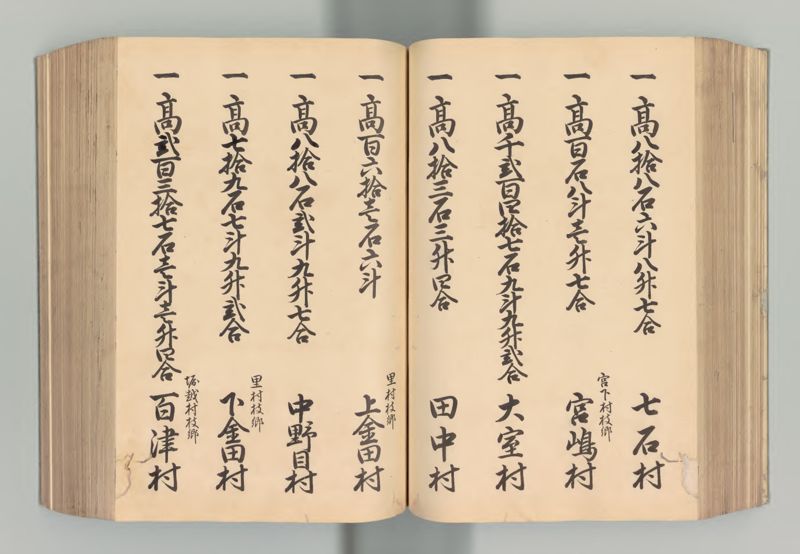 一 高八拾八石六斗八升七合 七石村
一 高百石八斗壱升七合 宮下村枝郷 宮嶋村
一 高千弐百四拾七石九斗九升弐合 大室村
一 高八拾三石三升四合 田中村
一 高百六拾壱石六斗 里村枝郷 上金田村
一 高八拾八石弐斗九升七合 中野目村
一 高七拾九石七斗九升弐合 里村枝郷 下金田村
一 高弐百三拾七石壱斗壱升四合 堀越村枝郷 百津村